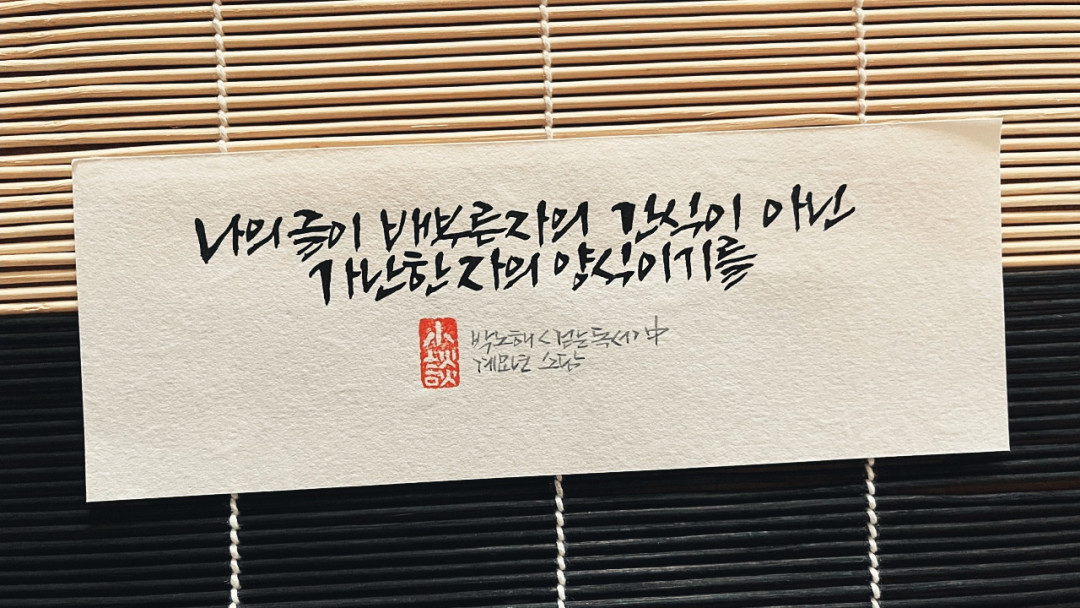 나의글이 배부른자의 간식이 아닌
가난한 자의 양식이기를
小談
박노해 <걷는독서> 中
계묘년 소담